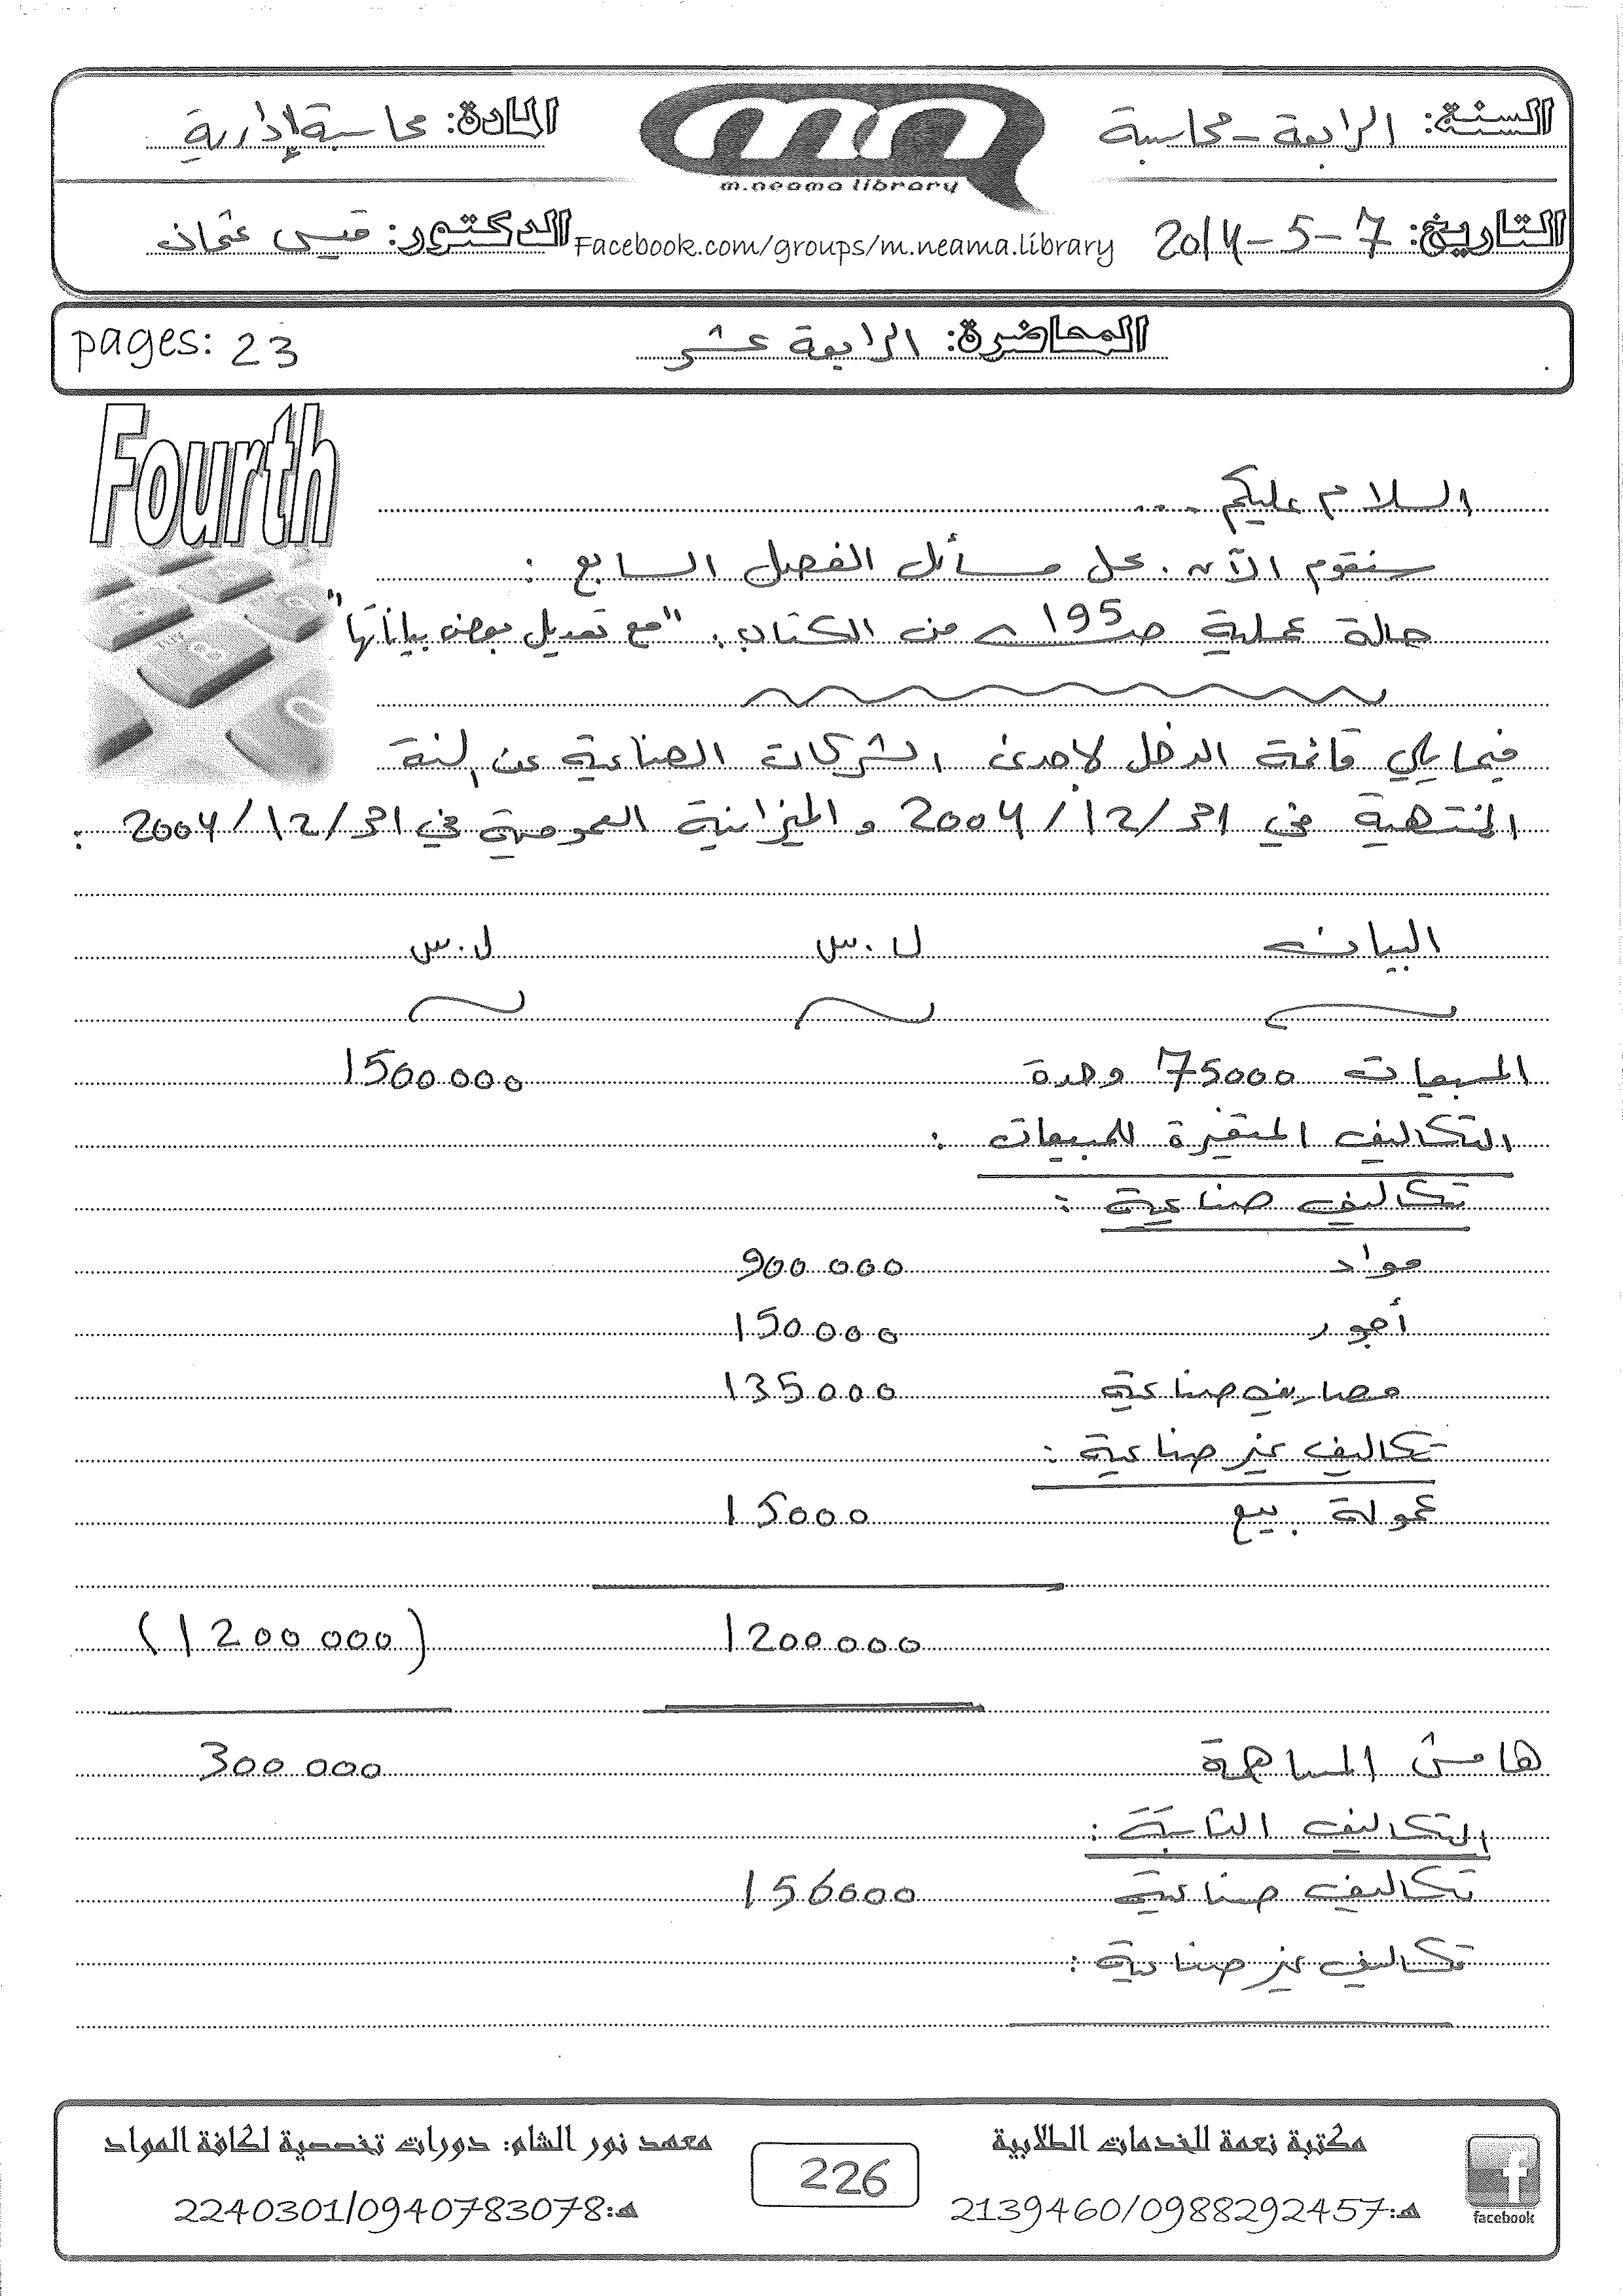 السنة: الرابعة - محاسبة
المادة: محاسبة إدارية
m.neama library
التاريخ: 7-5-2014
Facebook.com/groups/m.neama.library
الدكتور: قيس عثمان
المحاضرة: الرابعة عشر
pages: 23
Fourth
السلام عليكم ....
سنقوم الآن بحل مسائل الفصل السابع :
حالة عملية ص195 من الكتاب "مع تعديل بعض بياناتها"
فيما يلي قائمة الدخل لإحدى الشركات الصناعية عن السنة
المنتهية في 31/12/2004 والميزانية العمومية في 31/12/2004 :
البيان ل.س ل.س
المبيعات 75000 وحدة 1500000
التكاليف المتغيرة للمبيعات :
تكاليف صناعية :
مواد 900000
أجور 150000
مصاريف صناعية 135000
تكاليف غير صناعية :
عمولة بيع 15000
1200000 (1200000)
هامش المساهمة 300000
التكاليف الثابتة :
تكاليف صناعية 156000
تكاليف غير صناعية :
مكتبة نعمة للخدمات الطلابية
هـ:2139460/0988292457
facebook
226
معهد نور الشام: دورات تخصصية لكافة المواد
هـ:2240301/0940783078